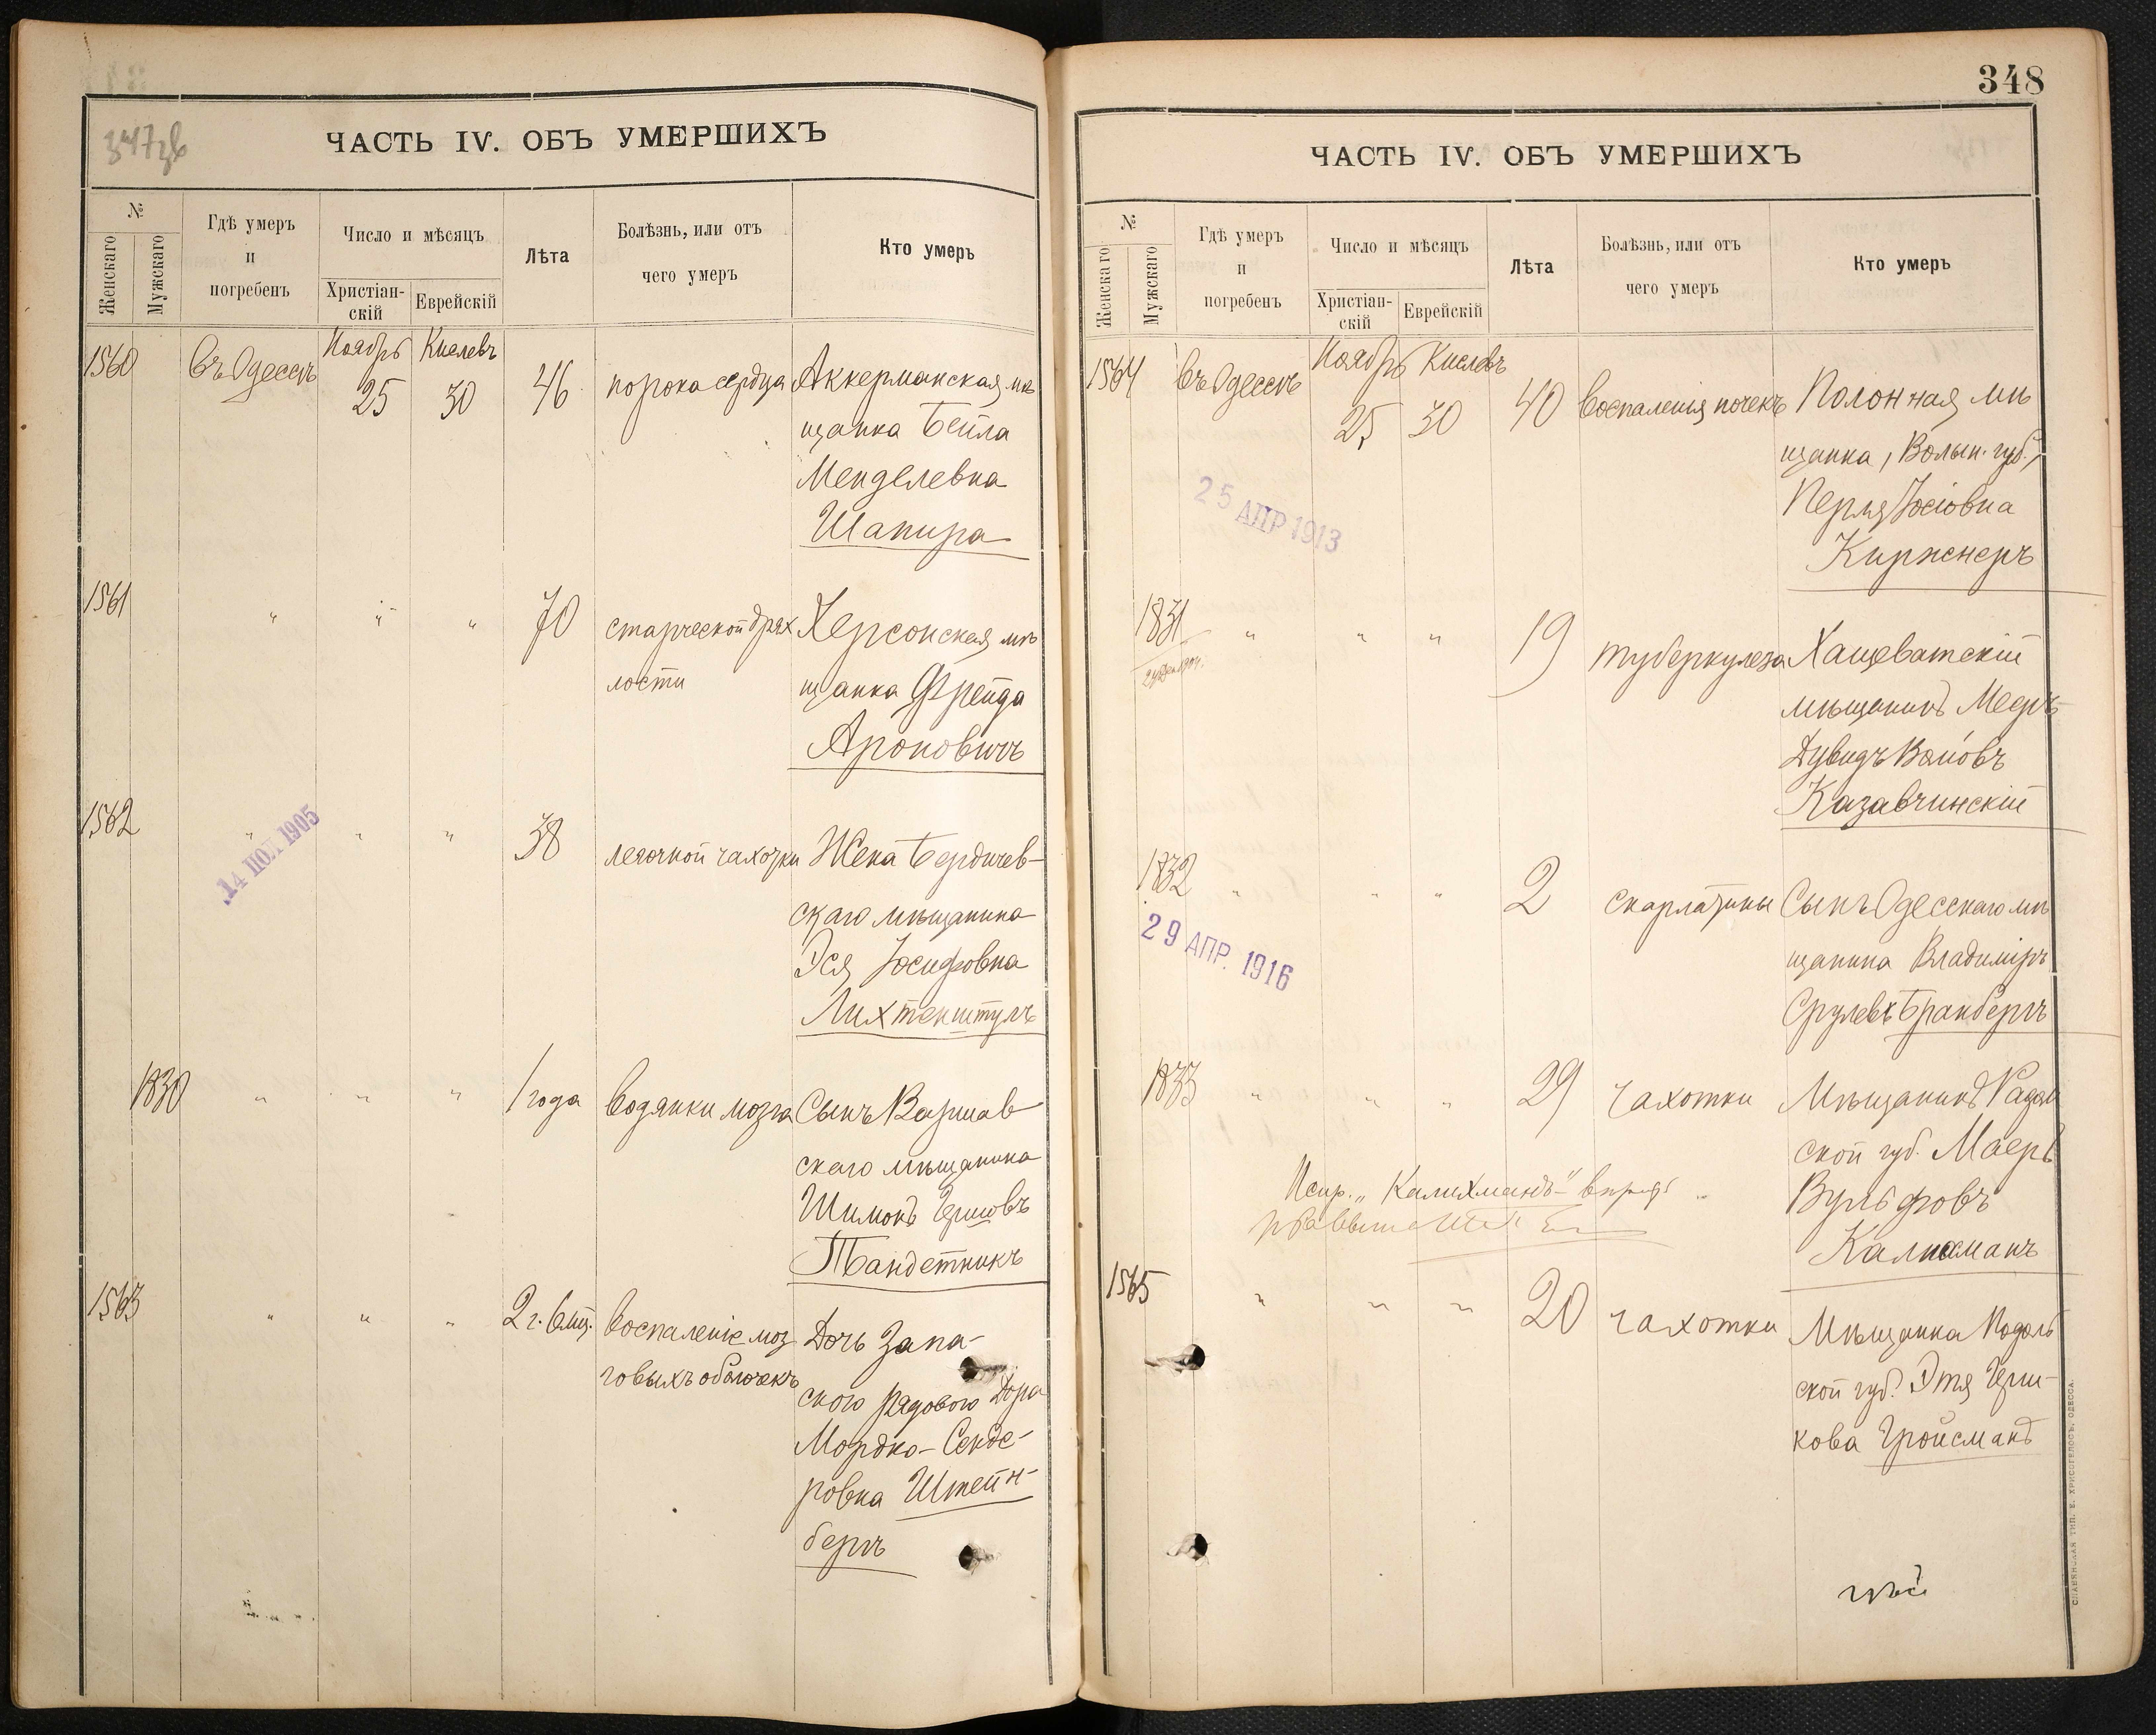 347зв
ЧАСТЬ IV. ОБЪ УМЕРШИХЪ
№
Женскаго
Мужскаго
Гдѣ умеръ
и
погребенъ
Число и мѣсяцъ
Христіан-
скій
Еврейскій
Лѣта
Болѣзнь, или отъ
чего умеръ
Кто умеръ
1560 Въ Одессѣ Ноябрь 25 Кислевъ 30 46 порока сердца Аккерманская мѣ
щанка Бейла
Менделевна
Шапира
1561 " " " 70 старческой дрях Херсонская мѣ
лости щанка Фрейда
Ароновичъ
1562 " " " 38 легочной чахотки Жена Бердичев-
скаго мѣщанина
Эся Іосифовна
Лихтенштулъ
14 ИЮЛ 1905
1830 " " " 1 года водянки мозга Сынъ Варшав
скаго мѣщанина
Шимонъ Гершовъ
Тандетникъ
1563 " " " 2 г. 6 мц. воспаленіе моз Дочь Запа-
говыхъ оболочекъ ского рядового Дора
Мордко-Сенде-
ровна Штейн-
бергъ
348
ЧАСТЬ IV. ОБЪ УМЕРШИХЪ
№
Женскаго
Мужскаго
Гдѣ умеръ
и
погребенъ
Число и мѣсяцъ
Христіан-
скій
Еврейскій
Лѣта
Болѣзнь, или отъ
чего умеръ
Кто умеръ
1564 Въ Одессѣ Ноябрь 25 Кислевъ 30 40 Воспаленія почекъ Полонная мѣ
щанка, Волын. губ.,
Перля Іосіовна
Кирженеръ
25 АПР 1913
1831 " " " 19 туберкулеза Хащеватскій
мѣщанинъ Мееръ-
Дувидъ
Казавчинскій
1832 " " " 2 скарлатины Сынъ Одесскаго мѣ
щанина Владиміръ
Срулевъ Бранбергъ
29 АПР. 1916
1833 " " " 29 чахотки Мѣщанинъ Радом
ской губ. Маеръ
Вульфовъ
Калихманъ
Испр. „Калихманъ"
1565 " " " 20 чахотки Мѣщанка Подоль
ской губ. Этя Герш-
кова Гройсманъ
СЛАВЯНСКАЯ ТИП. Е. ХРИСОГЕЛОСЪ, ОДЕССА.